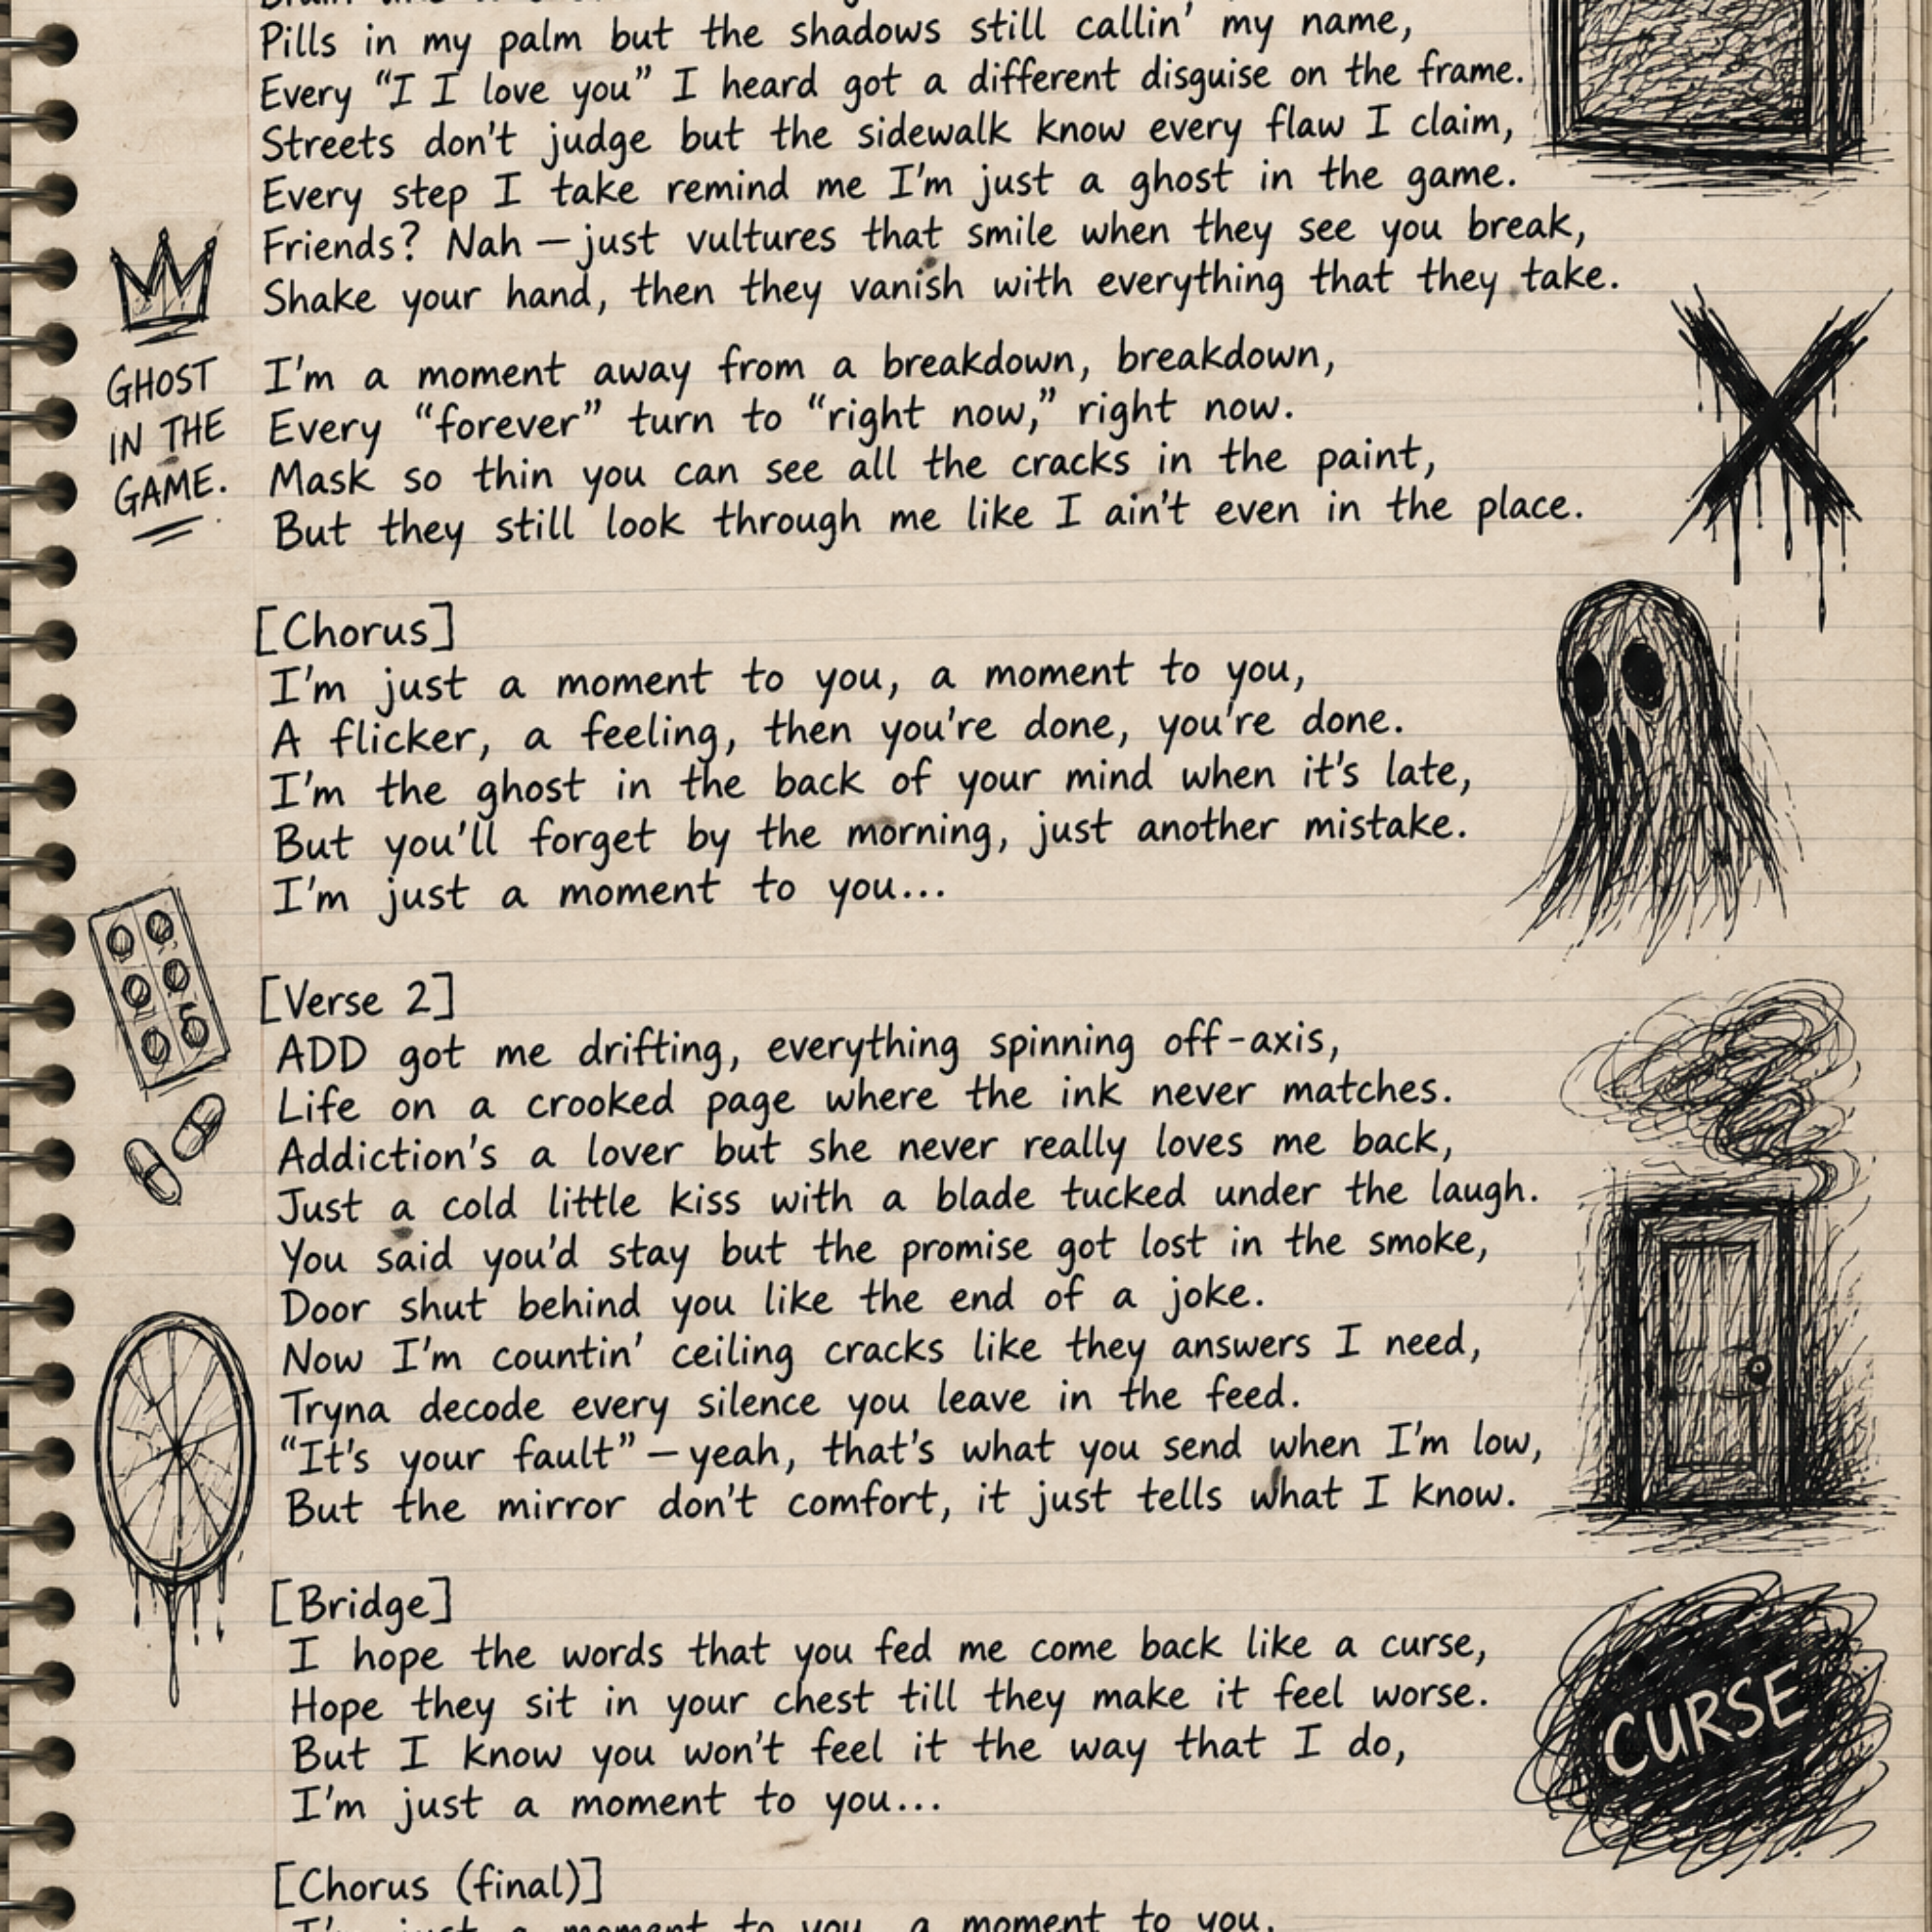 Pills in my palm but the shadows still callin' my name,
Every “I I love you” I heard got a different disguise on the frame.
Streets don't judge but the sidewalk know every flaw I claim,
Every step I take remind me I'm just a ghost in the game.
Friends? Nah — just vultures that smile when they see you break,
Shake your hand, then they vanish with everything that they take.
GHOST
IN THE
GAME.
I'm a moment away from a breakdown, breakdown,
Every “forever” turn to “right now,” right now.
Mask so thin you can see all the cracks in the paint,
But they still look through me like I ain't even in the place.
[Chorus]
I'm just a moment to you, a moment to you,
A flicker, a feeling, then you're done, you're done.
I'm the ghost in the back of your mind when it's late,
But you'll forget by the morning, just another mistake.
I'm just a moment to you...
[Verse 2]
ADD got me drifting, everything spinning off-axis,
Life on a crooked page where the ink never matches.
Addiction's a lover but she never really loves me back,
Just a cold little kiss with a blade tucked under the laugh.
You said you'd stay but the promise got lost in the smoke,
Door shut behind you like the end of a joke.
Now I'm countin' ceiling cracks like they answers I need,
Tryna decode every silence you leave in the feed.
“It's your fault” — yeah, that's what you send when I'm low,
But the mirror don't comfort, it just tells what I know.
[Bridge]
I hope the words that you fed me come back like a curse,
Hope they sit in your chest till they make it feel worse.
But I know you won't feel it the way that I do,
I'm just a moment to you...
CURSE
[Chorus (final)]
I'm just a moment to you, a moment to you,